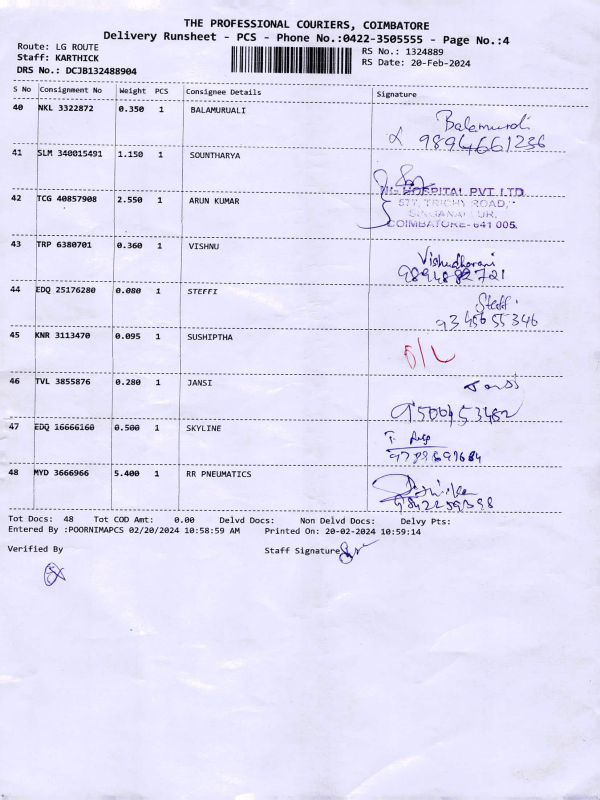 THE PROFESSIONAL COURIERS, COIMBATORE
Delivery Runsheet - PCS - Phone No.:0422-3505555 - Page No.:4
Route: LG ROUTE
RS No.: 1324889
Staff: KARTHICK
RS Date: 20-Feb-2024
DRS No.: DCJB132488904
S No Consignment No Weight PCS Consignee Details Signature
40 NKL 3322872 0.350 1 BALAMURUALI
Balamurali
9894661236
41 SLM 340015491 1.150 1 SOUNTHARYA
HOSPITAL PVT LTD
42 TCG 40857908 2.550 1 ARUN KUMAR
577, TRICHY ROAD,
SINGANALLUR,
COIMBATORE-641 005.
43 TRP 6380701 0.360 1 VISHNU
Vishnudharani
9894882721
44 EDQ 25176280 0.080 1 STEFFI
Steffi
9345655346
45 KNR 3113470 0.095 1 SUSHIPTHA
D/L
46 TVL 3855876 0.280 1 JANSI
Jansi
47 EDQ 16666160 0.500 1 SKYLINE
48 MYD 3666966 5.400 1 RR PNEUMATICS
Tot Docs: 48 Tot COD Amt: 0.00 Delvd Docs: Non Delvd Docs: Delvy Pts:
Entered By :POORNIMAPCS 02/20/2024 10:58:59 AM Printed On: 20-02-2024 10:59:14
Verified By Staff Signature